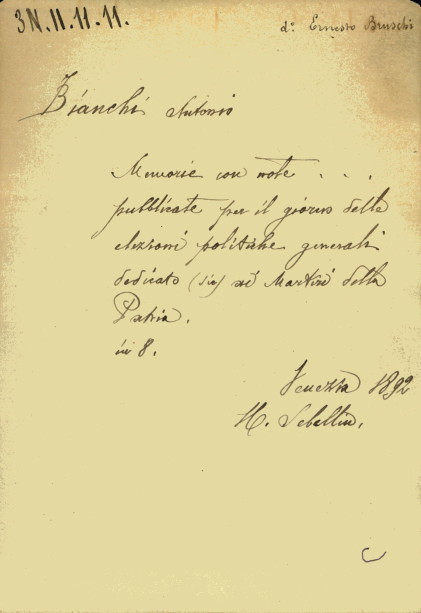 3N.II.11.11.
d: Ernesto Bruschi
Bianchi Antonio
Memorie con note . . .
pubblicate per il giorno delle
elezioni politiche generali
dedicato (sic) ai Martiri della
Patria.
in 8.
Venezia 1892
H. Sebellin.
C